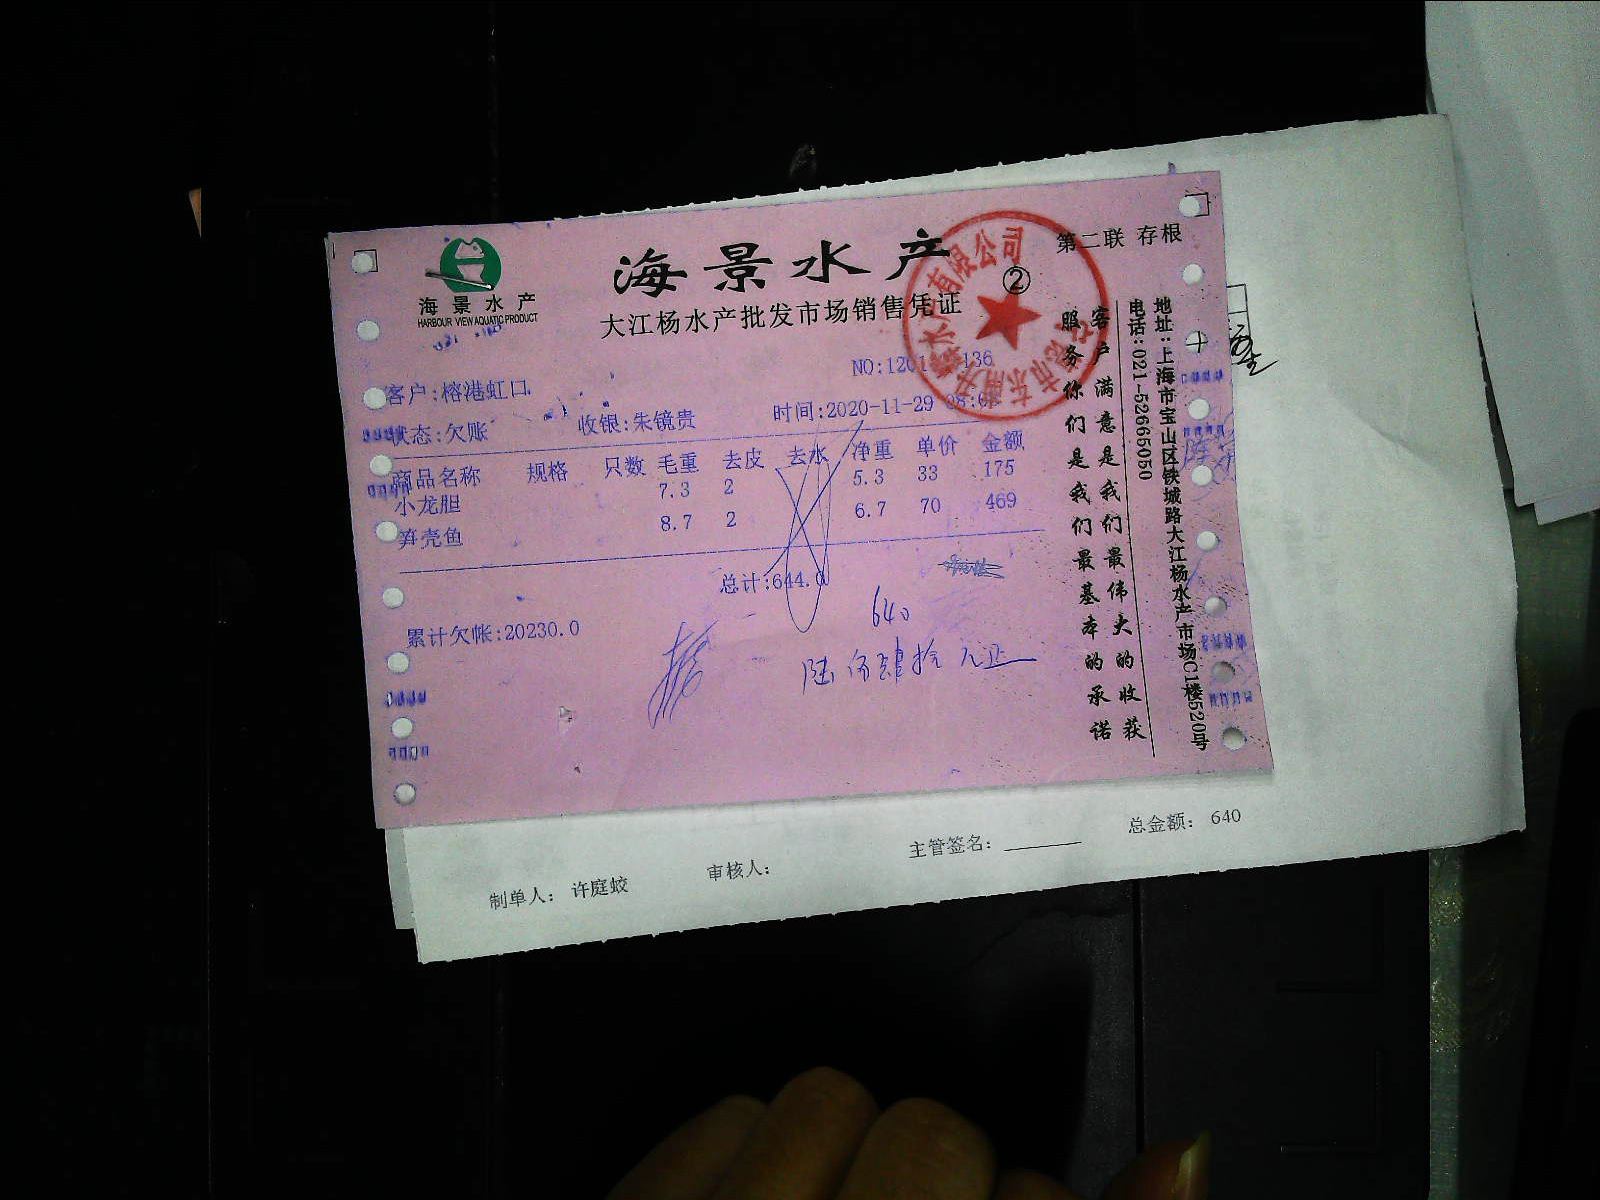 海景水产
HARBOUR VIEW AQUATIC PRODUCT
海景水产
大江杨水产批发市场销售凭证
②
第二联 存根
有限公司
客户:榕港虹口
状态:欠账 收银:朱镜贵 时间:2020-11-29
商品名称 规格 只数 毛重 去皮 去水 净重 单价 金额
小龙胆 7.3 2 5.3 33 175
笋壳鱼 8.7 2 6.7 70 469
总计:644.0
640
陆佰肆拾元正
累计欠帐:20230.0
客户满意是我们最伟大的收获
服务你们是我们最基本的承诺
地址:上海市宝山区铁城路大江杨水产市场C1楼520号
电话:021-52665050
制单人: 许庭蛟 审核人: 主管签名: 总金额: 640